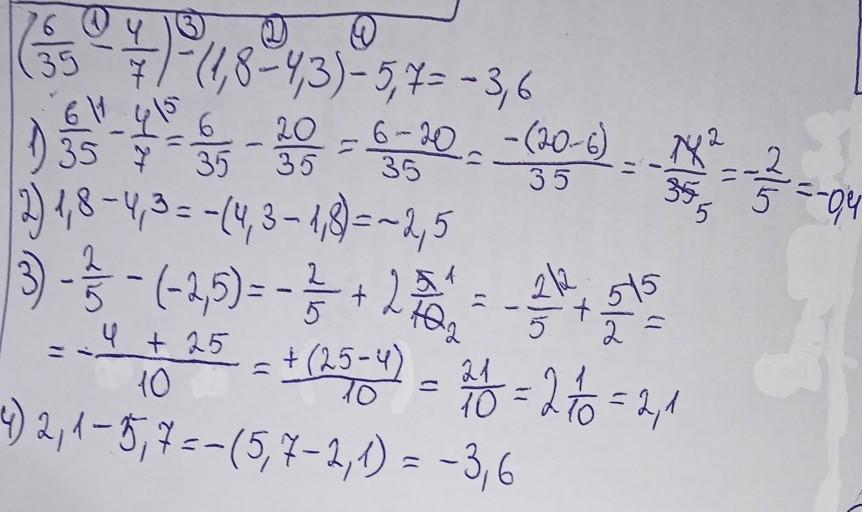 ① ③ ② ④
(6/35 − 4/7) − (1,8 − 4,3) − 5,7 = −3,6
1) 6\1/35 − 4\5/7 = 6/35 − 20/35 = (6 − 20)/35 = −(20−6)/35 = −14²/35₅ = −2/5 = −0,4
2) 1,8 − 4,3 = −(4,3 − 1,8) = −2,5
3) −2/5 − (−2,5) = −2/5 + 2 5¹/10₂ = −2\2/5 + 5\5/2 =
= (−4 + 25)/10 = +(25−4)/10 = 21/10 = 2 1/10 = 2,1
4) 2,1 − 5,7 = −(5,7 − 2,1) = −3,6